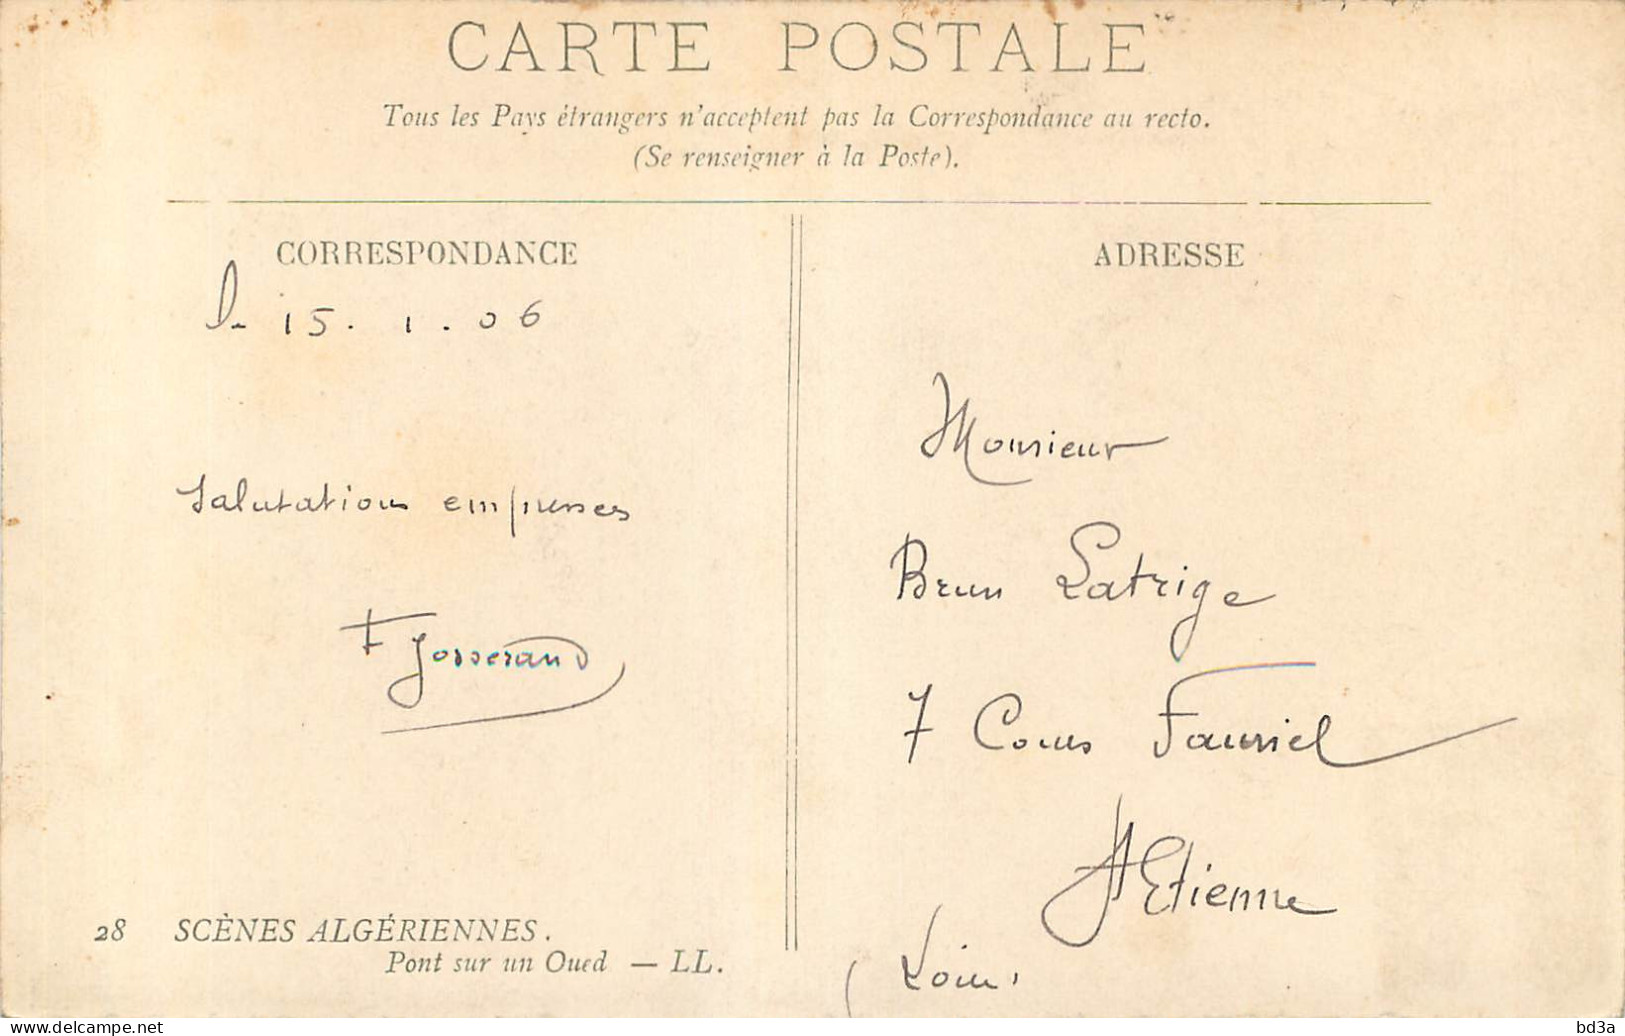 CARTE POSTALE
Tous les Pays étrangers n'acceptent pas la Correspondance au recto.
(Se renseigner à la Poste).
CORRESPONDANCE
le 15. 1. 06
Salutations empressées
F Josserand
ADRESSE
Monsieur
Brun Latrige
7 Cours Fauriel
St Etienne
(Loire)
28 SCÈNES ALGÉRIENNES.
Pont sur un Oued — LL.
bd3a